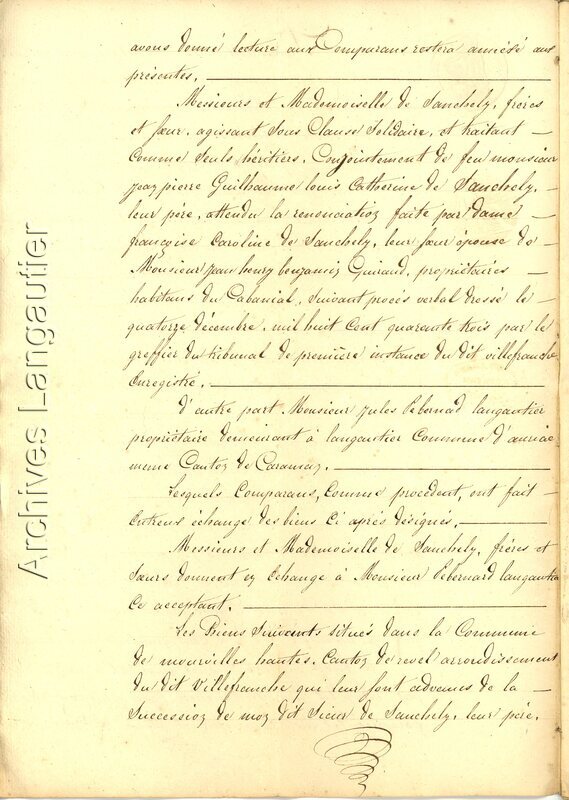 avons donné lecture aux Comparans restera annéxé aux
présentes.
Messieurs et Mademoiselle de Sanchely, frères
et sœur, agissant sous Clause Solidaire, et traitant
comme seuls héritiers, Conjointement de feu monsieur
jean pierre Guilhaume louis Catherine de Sanchely,
leur père, attendu la renonciation faite par dame
françoise Caroline de Sanchely, leur sœur épouse de
Monsieur jean henry benjamin Guiraud, propriétaires
habitans du Cabanial, suivant procès verbal dressé le
quatorze décembre, mil huit cent quarante trois par le
greffier du tribunal de première instance du dit villefranche
Enregistré.
D'autre part Monsieur jules Pebernad langautier
propriétaire demeurant à langautier Commune d'auriac
meme Canton de Caraman.
Lesquels Comparans, comme procedent, ont fait
Entreux échange des biens Ci après désignés.
Messieurs et Mademoiselle de Sanchely, frères et
sœurs donnent en Echange à Monsieur Pebernard langautier
Ce acceptant.
Les Biens suivants situés dans la Commune
de mourvilles hautes, Canton de revel arrondissement
du dit Villefranche qui leur sont advenus de la
Succession de mon dit Sieur de Sanchely, leur père.
Archives Langautier